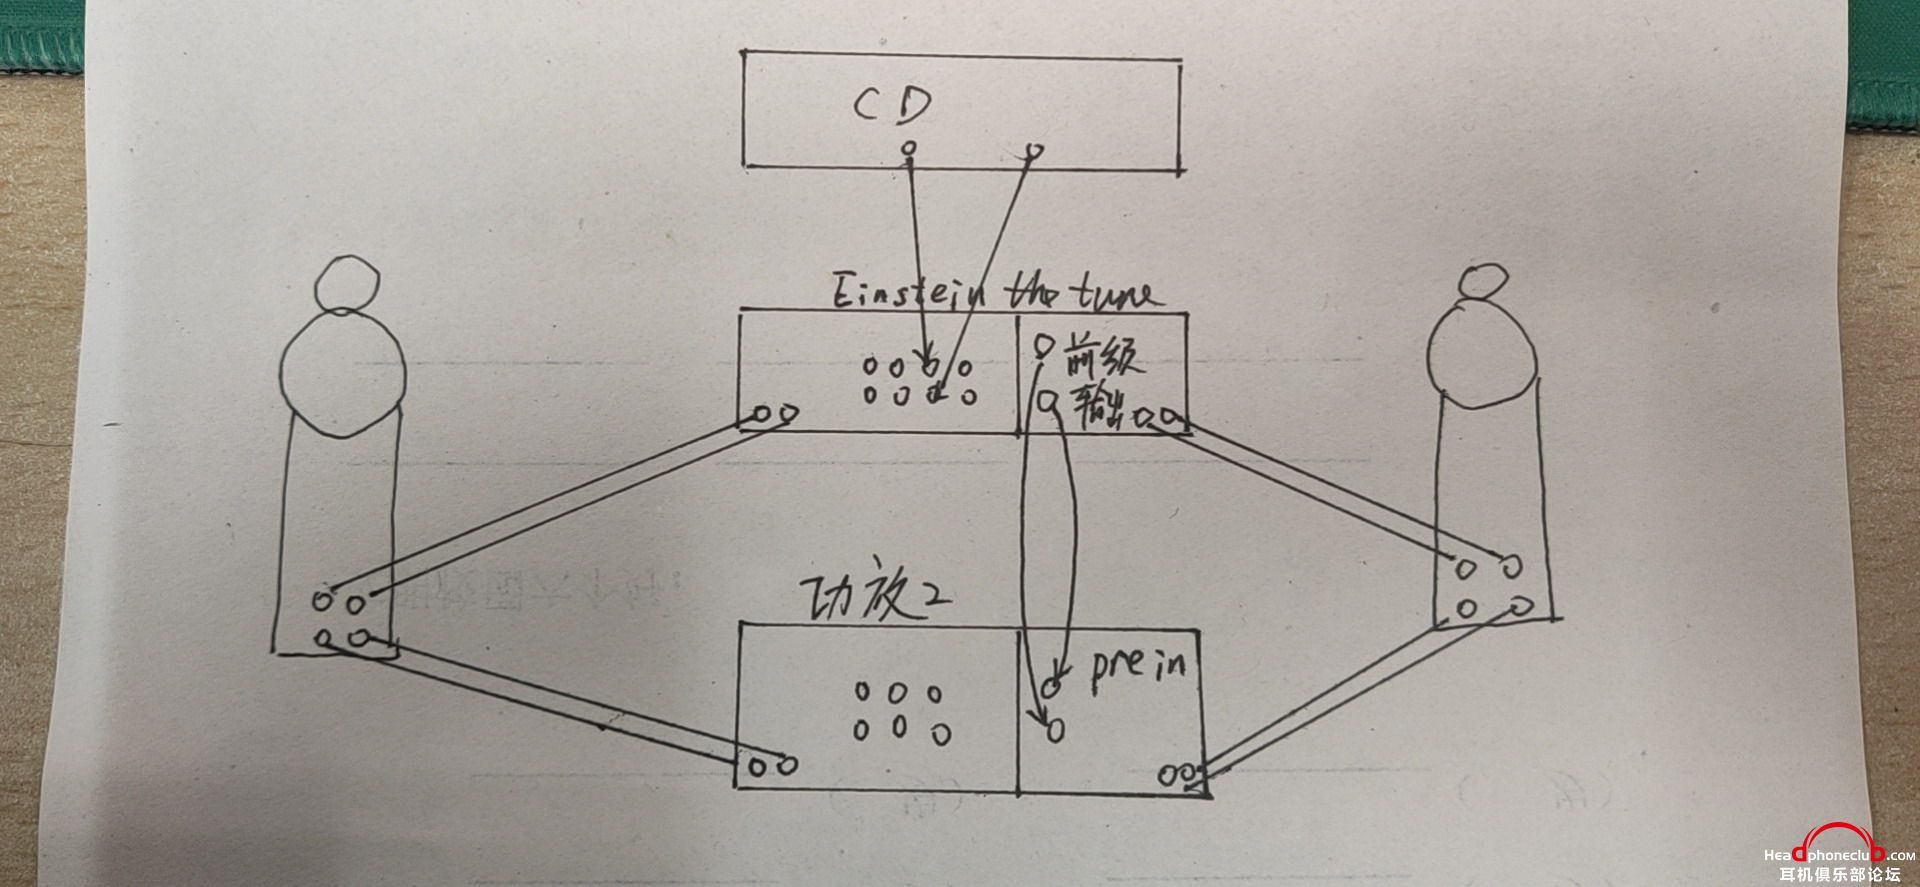 CD
Einstein the tune
前级
输出
功放2
pre in
Headphoneclub.com
耳机俱乐部论坛